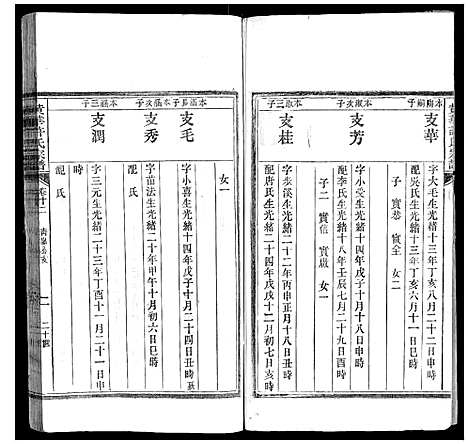 本淑次子
支華
字大毛生光緒十三年丁亥八月二十二申時
配吳氏生光緒十三年丁亥六月十一日亥時
子二 實恭 實全 女二
本淑次子
支芳
字小受生光緒十四年戊子六月二十一日亥時
配李氏生光緒十八年壬辰七月二十九日酉時
子二 實信 實 女一
本淑三子
支桂
字泰溪生光緒二十二年丙申正月十八日時
配唐氏生光緒二十四年戊戌十二月初七日亥時
女一
本滋長子
支毛
字小喜生光緒十四年戊子十月二十四日丑時
本滋次子
支秀
字苗法生光緒二十年甲午十月初六日巳時
配 氏
本滋三子
支潤
字三元生光緒二十三年丁酉十一月二十一日
時
配 氏
許氏宗譜
卷廿二
二十四